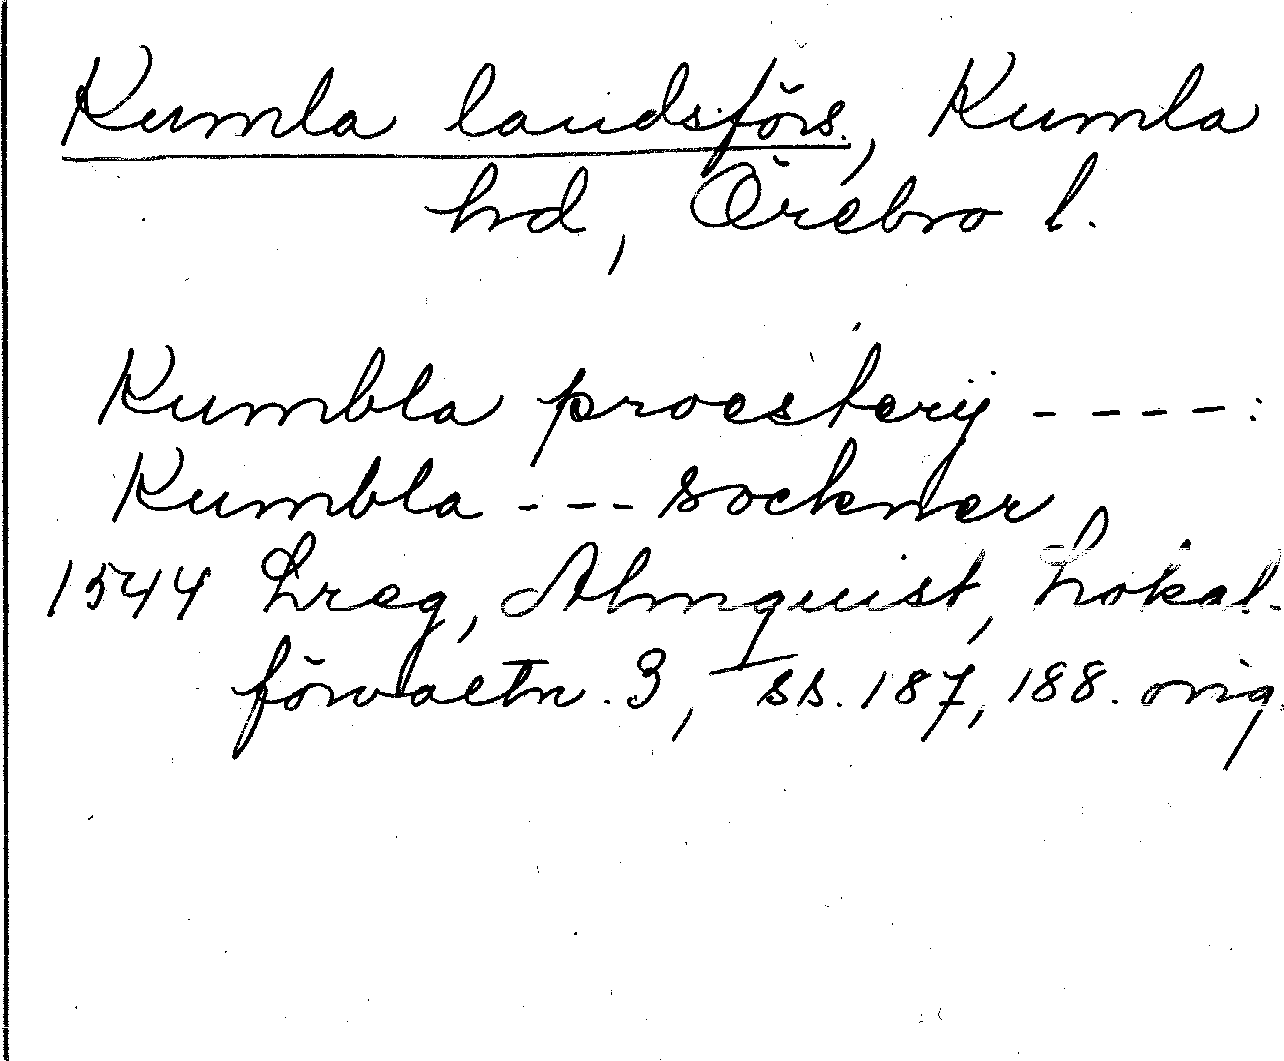 Kumla landsförs., Kumla
hd, Örebro l.
Kumbla proesterij ----:
Kumbla --- sockner
1544 Lreg, Almquist, Lokal-
förvaltn. 3, ss. 187, 188. orig.